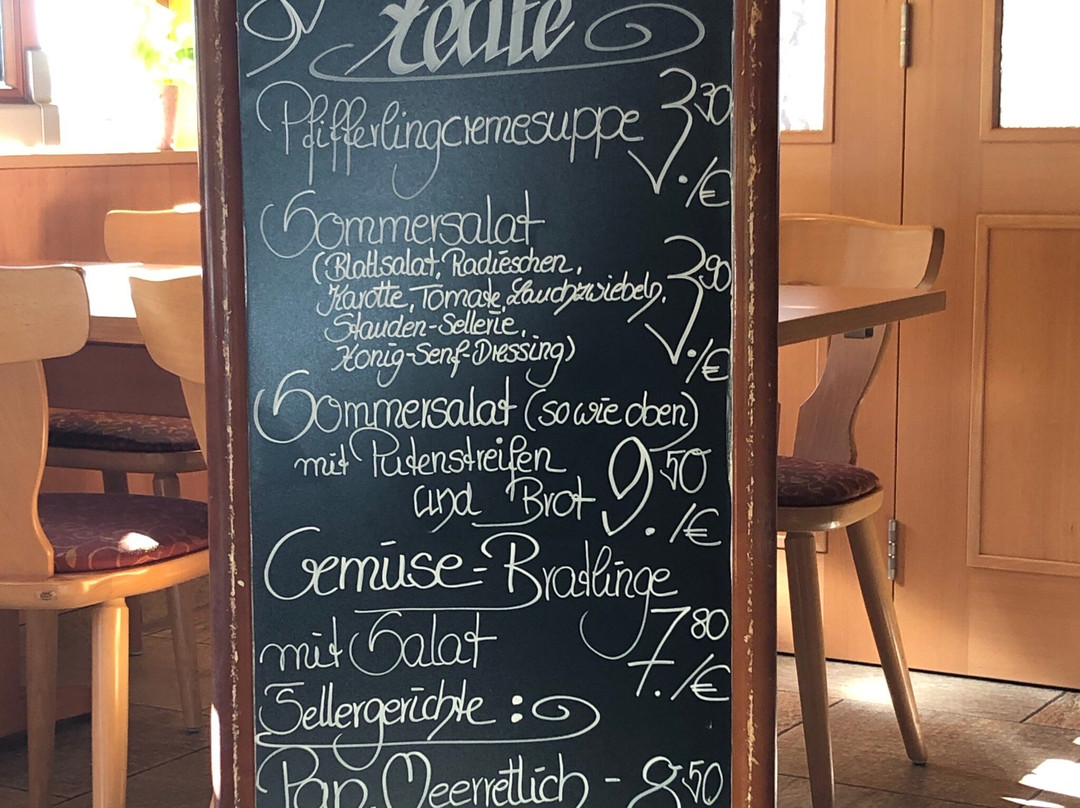 Heute
Pfifferlingcremesuppe 3 30 ./€
Sommersalat
(Blattsalat, Radieschen,
Karotte, Tomate, Lauchzwiebeln, 3 90 ./€
Stauden-Sellerie,
Honig-Senf-Dressing)
Sommersalat (sowie oben)
mit Putenstreifen
und Brot 9 50 ./€
Gemüse-Bratlinge
mit Salat 7 80 ./€
Tellergerichte :
Meerrettich - 8,50